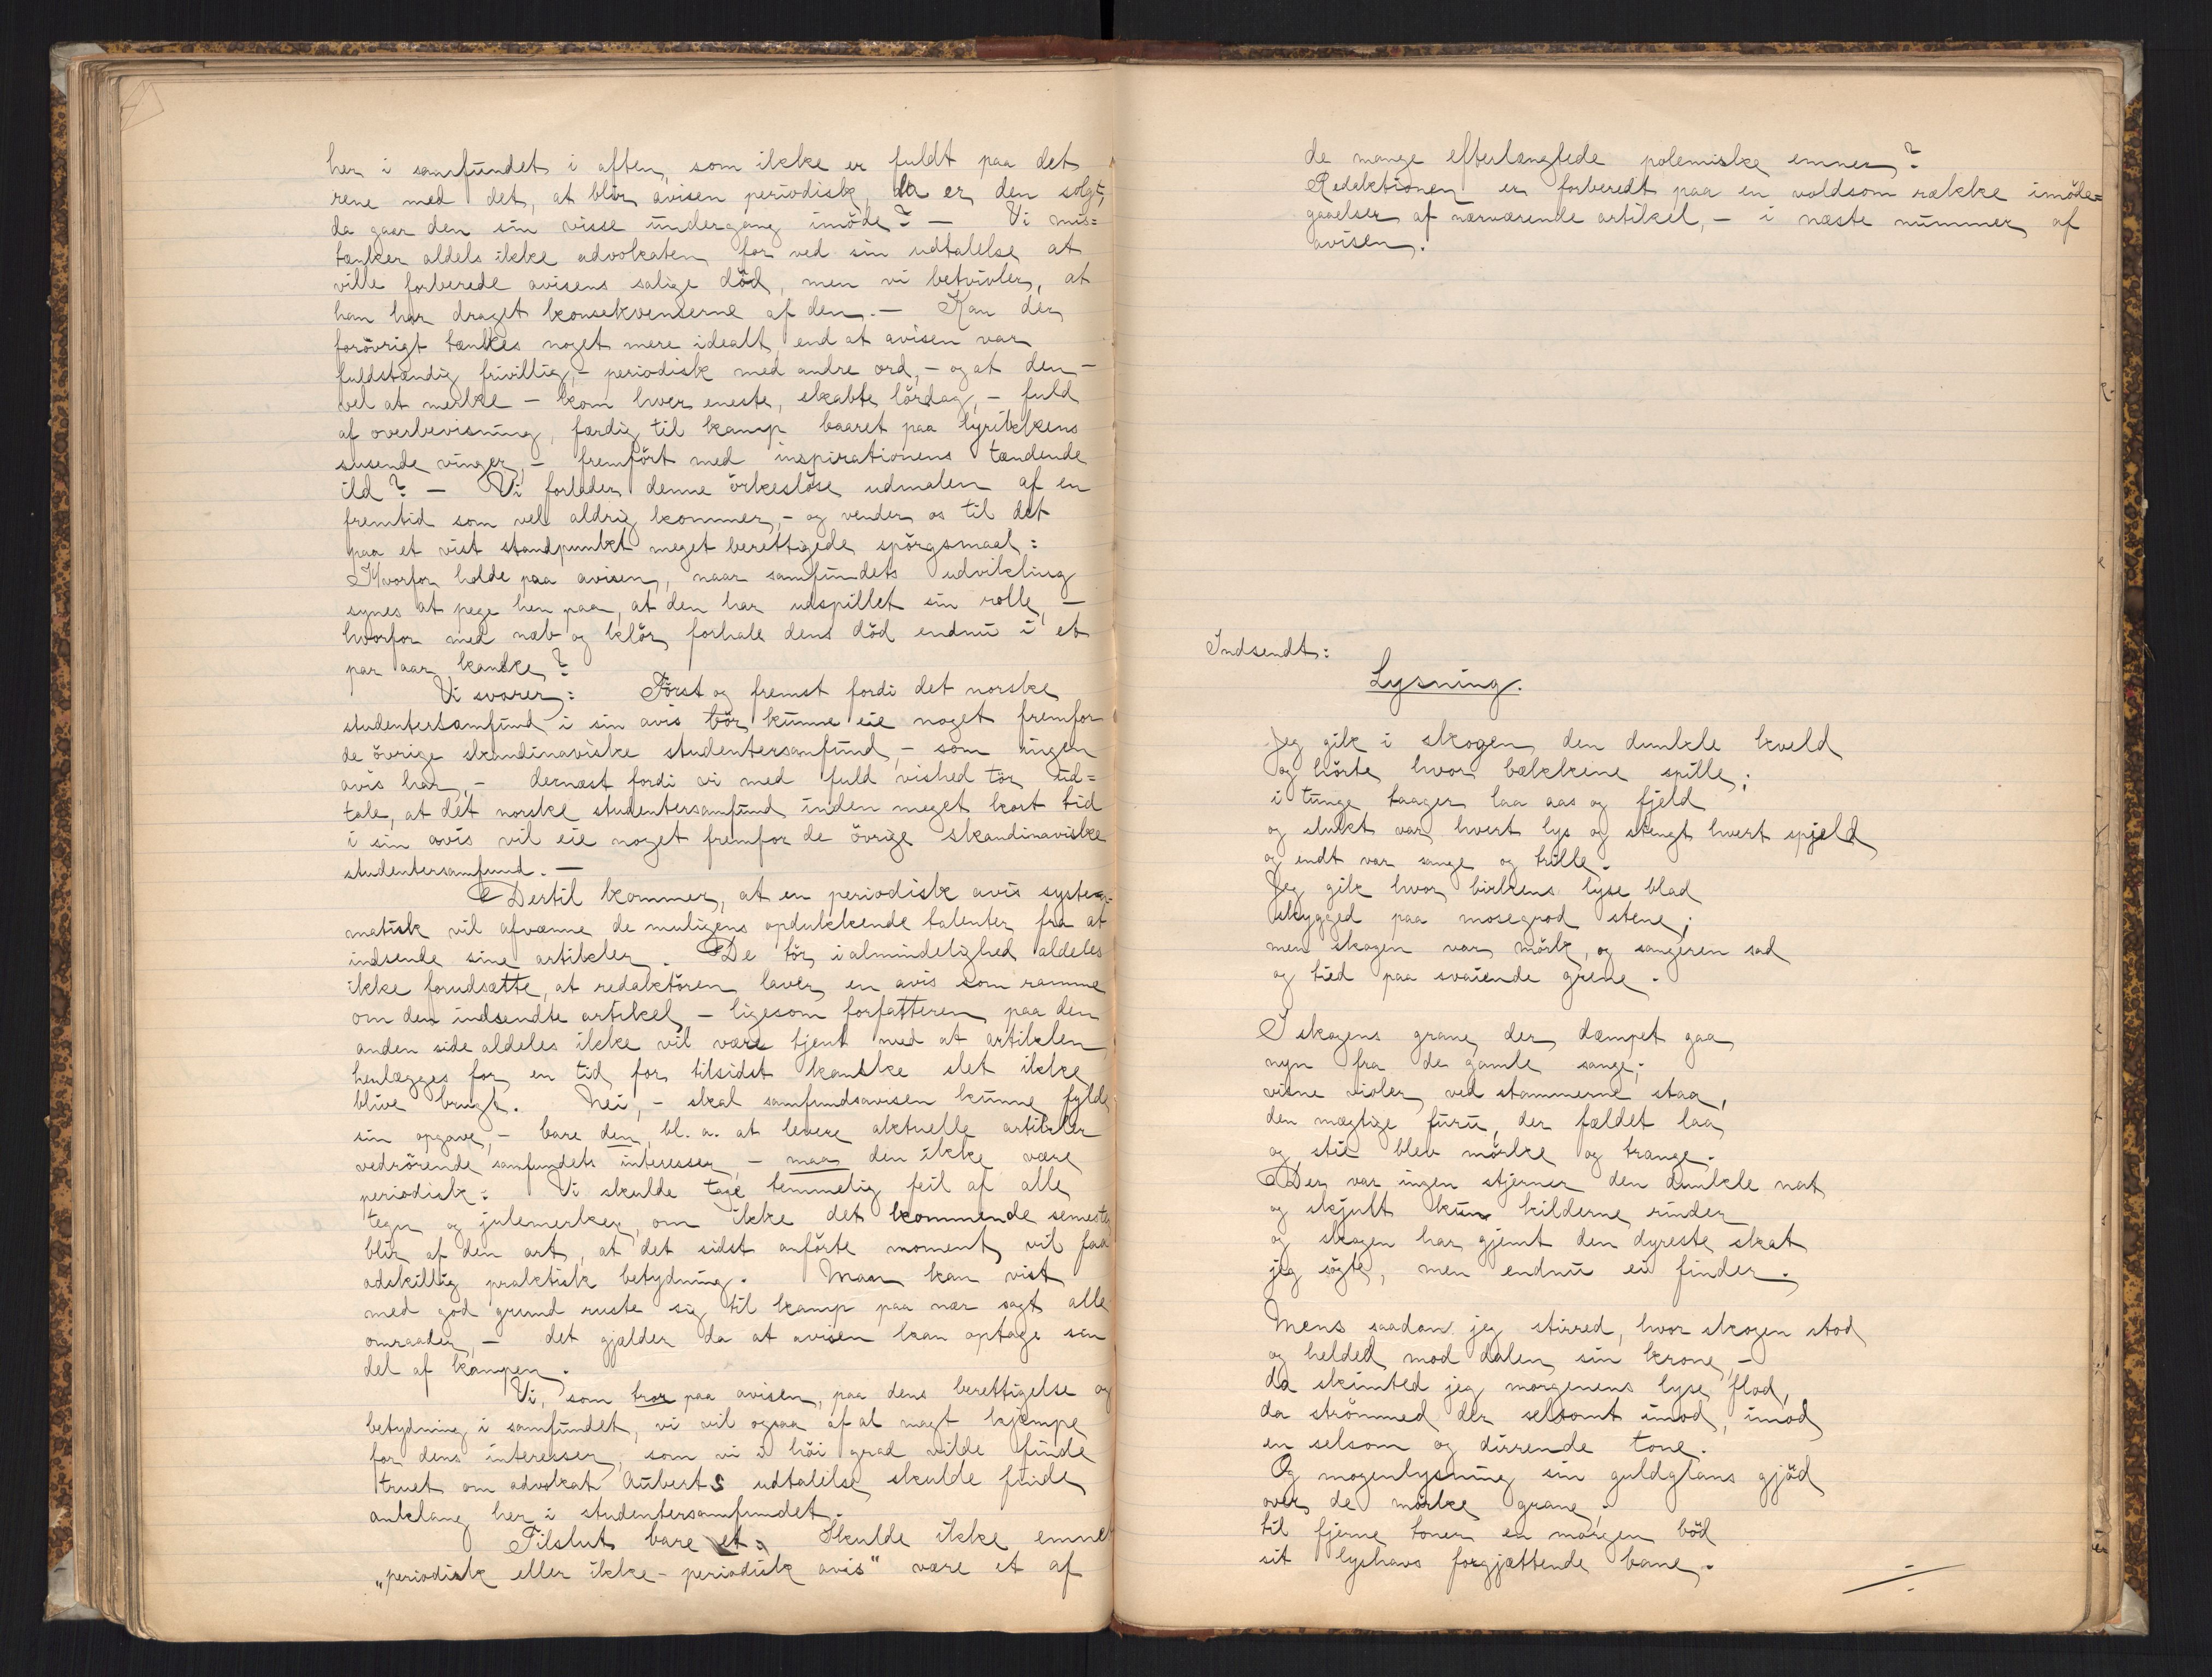 her i samfundet i aften, som ikke er fuldt paa det
rene med det, at blir avisen periodisk, da er den solgt,
da gaar den sin visse undergang imöde? — Vi mis=
tænker aldeles ikke advokaten for ved sin udtalelse at
ville forberede avisens salige död, men vi betvivler, at
han har draget konsekvenserne af den. — Kan der
forövrigt tænkes noget mere idealt, end at avisen var
fuldstændig frivillig, – periodisk med andre ord, – og at den –
vel at merke – kom hver eneste, skabte lördag, – fuld
af overbevisning, færdig til kamp baaret paa lyrikkens
susende vinger, – fremfört med inspirationens tændende
ild? — Vi forlader denne örkeslöse udmalen af en
fremtid som vel aldrig kommer, – og vender os til det
paa et vist standpunkt meget berettigede spörgsmaal:
Hvorfor holde paa avisen, naar samfundets udvikling
synes at pege hen paa, at den har udspillet sin rolle, –
hvorfor med næb og klör forhale dens död endnu i et
par aar kanske?
Vi svarer: Först og fremst fordi det norske
studentersamfund i sin avis bör kunne eie noget fremfor
de övrige skandinaviske studentersamfund, – som ingen
avis har, – dernæst fordi vi med fuld vished tör ud=
tale, at det norske studentersamfund inden meget kort tid
i sin avis vil eie noget fremfor de övrige skandinaviske
studentersamfund. —
Dertil kommer, at en periodisk avis syste=
matisk vil afvænne de muligens opdukkende talenter fra at
indsende sine artikler. De tör i almindelighed aldeles
ikke forudsætte, at redaktören laver en avis som ramme
om den indsendte artikel, – ligesom forfatteren paa den
anden side aldeles ikke vil være tjent med at artiklen
henlægges for en tid for tilsidst kanske slet ikke
blive brugt. Nei, – skal samfundsavisen kunne fylde
sin opgave, – bare den, bl. a. at levere aktuelle artikler
vedrörende samfundets interesser, – maa den ikke være
periodisk: Vi skulde tage temmelig feil af alle
tegn og julemerker, om ikke det kommende semester
blir af den art, at det sidst anförte moment vil faa
adskillig praktisk betydning. Man kan vist
med god grund ruste sig til kamp paa nær sagt alle
omraader, – det gjælder da at avisen kan optage sin
del af kampen.
Vi, som tror paa avisen, paa dens berettigelse og
betydning i samfundet, vi vil ogsaa af al magt kjæmpe
for dens interesser, som vi i höi grad vilde finde
truet om advokat Auberts udtalelse skulde finde
anklang her i studentersamfundet.
Tilslut bare et: Skulde ikke emnet
„periodisk eller ikke-periodisk avis" være et af
de mange efterlængtede polemiske emner?
Redaktionen er forberedt paa en voldsom række imöde=
gaaelser af nærværende artikel, – i næste nummer af
avisen.
Indsendt:
Lysning.
Jeg gik i skogen den dunkle kveld
og hörte hvor bækkene spille;
i tunge taager laa aas og fjeld
og slukt var hvert lys og stengt hvert spjeld
og endt var sange og trille.
Jeg gik hvor birkens lyse blad
skygged paa mosegrod stene;
men skogen var mörk, og sangeren sad
og tied paa svaiende grene.
I skogens grane der dæmpet gaa
nyn fra de gamle sange;
visne violer ved stammerne staa,
den mægtige furu, der fældet laa
og stie blev mörke og trange.
Der var ingen stjerner den dunkle nat
og skjult kun kilderne rinder
og skogen har gjemt den dyreste skat
jeg sögte, men endnu ei finder.
Mens saadan jeg stirred, hvor skogen stod
og helded mod dalen sin krone, –
da skimted jeg morgenens lyse flod,
da strömmed der selsomt imod, imod
en selsom og dirrende tone.
Og mogenlysning sin guldglans gjöd
over de mörke grane;
til fjerne toner en morgen böd
sit lyshavs forgjættende bane.